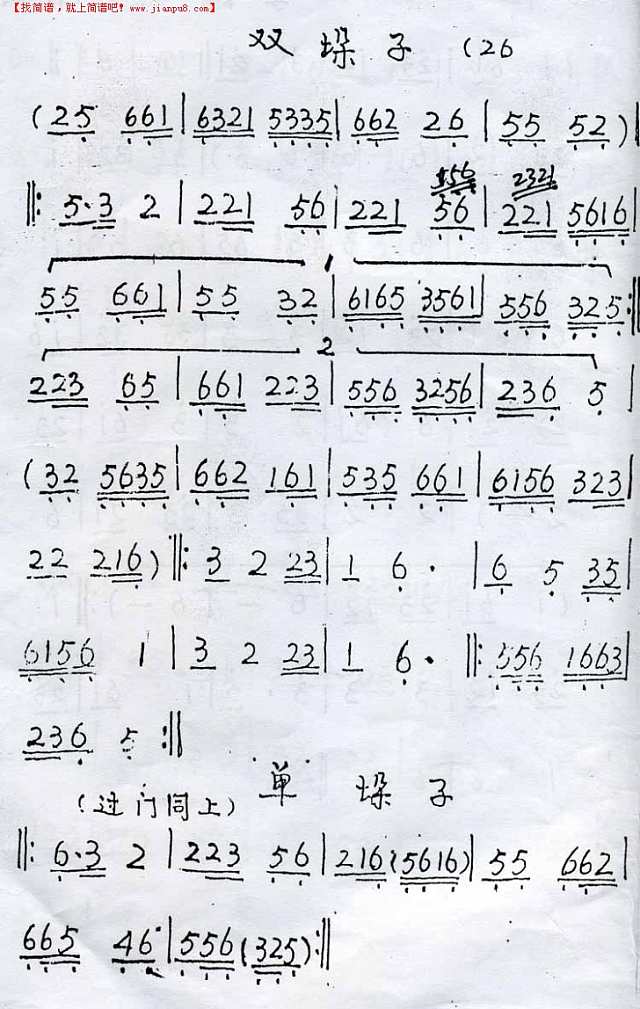 【找简谱，就上简谱吧！www.jianpu8.com】
双垛子 (26
(25 661|6321 5335|662 26|55 52)|
556 2321
‖: 5·3 2|221 56|221 56|221 5616|
1
55 661|55 32|6165 3561|556 325:‖
2
223 65|661 223|556 3256|236 5|
(32 5635|662 161|535 661|6156 323|
22 216)‖: 3 2 23|1 6·|6 5 35|
6156 1|3 2 23|1 6·‖: 556 1663|
236 5:‖
(过门同上) 单垛子
‖: 6·3 2|223 56|216(5616)|55 662|
665 46|556(325):‖